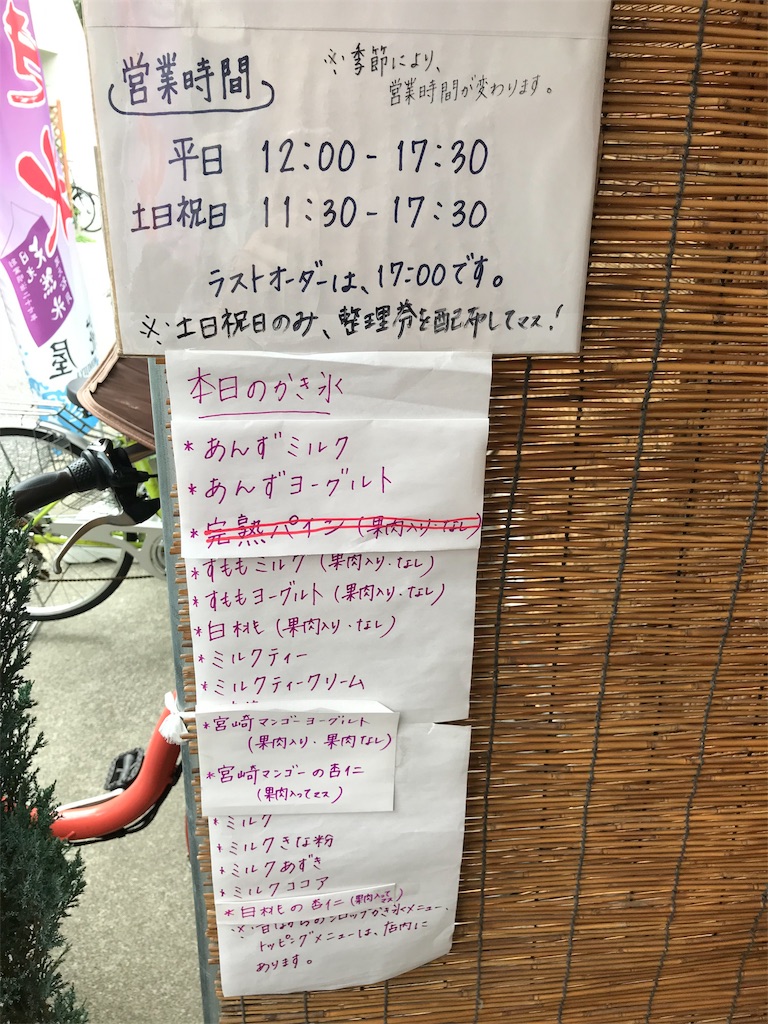 営業時間
※季節により、
営業時間が変わります。
平日 12:00-17:30
土日祝日 11:30-17:30
ラストオーダーは、17:00です。
※土日祝日のみ、整理券を配布してマス!
本日のかき氷
*あんずミルク
*あんずヨーグルト
*完熟パイン(果肉入り・なし)
*すももミルク(果肉入り・なし)
*すももヨーグルト(果肉入り・なし)
*白桃(果肉入り・なし)
*ミルクティー
*ミルクティークリーム
*宮崎マンゴーヨーグルト
(果肉入り・果肉なし)
*宮崎マンゴーの杏仁
(果肉入ってマス)
*ミルク
*ミルクきな粉
*ミルクあずき
*ミルクココア
*白桃の杏仁(果肉入ってマス)
※昔ながらのシロップかき氷メニュー、
トッピングメニューは、店内に
あります。
天然氷
屋